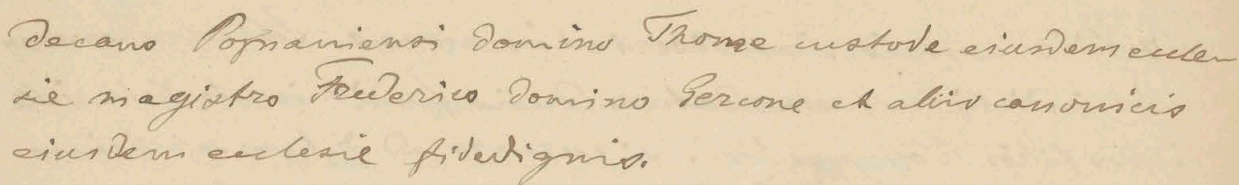 decano Poznaniensi domino Thome custode eiusdem eccle-
sie magistro Frederico domino Gercone et aliis canonicis
eiusdem ecclesie fidedignis.